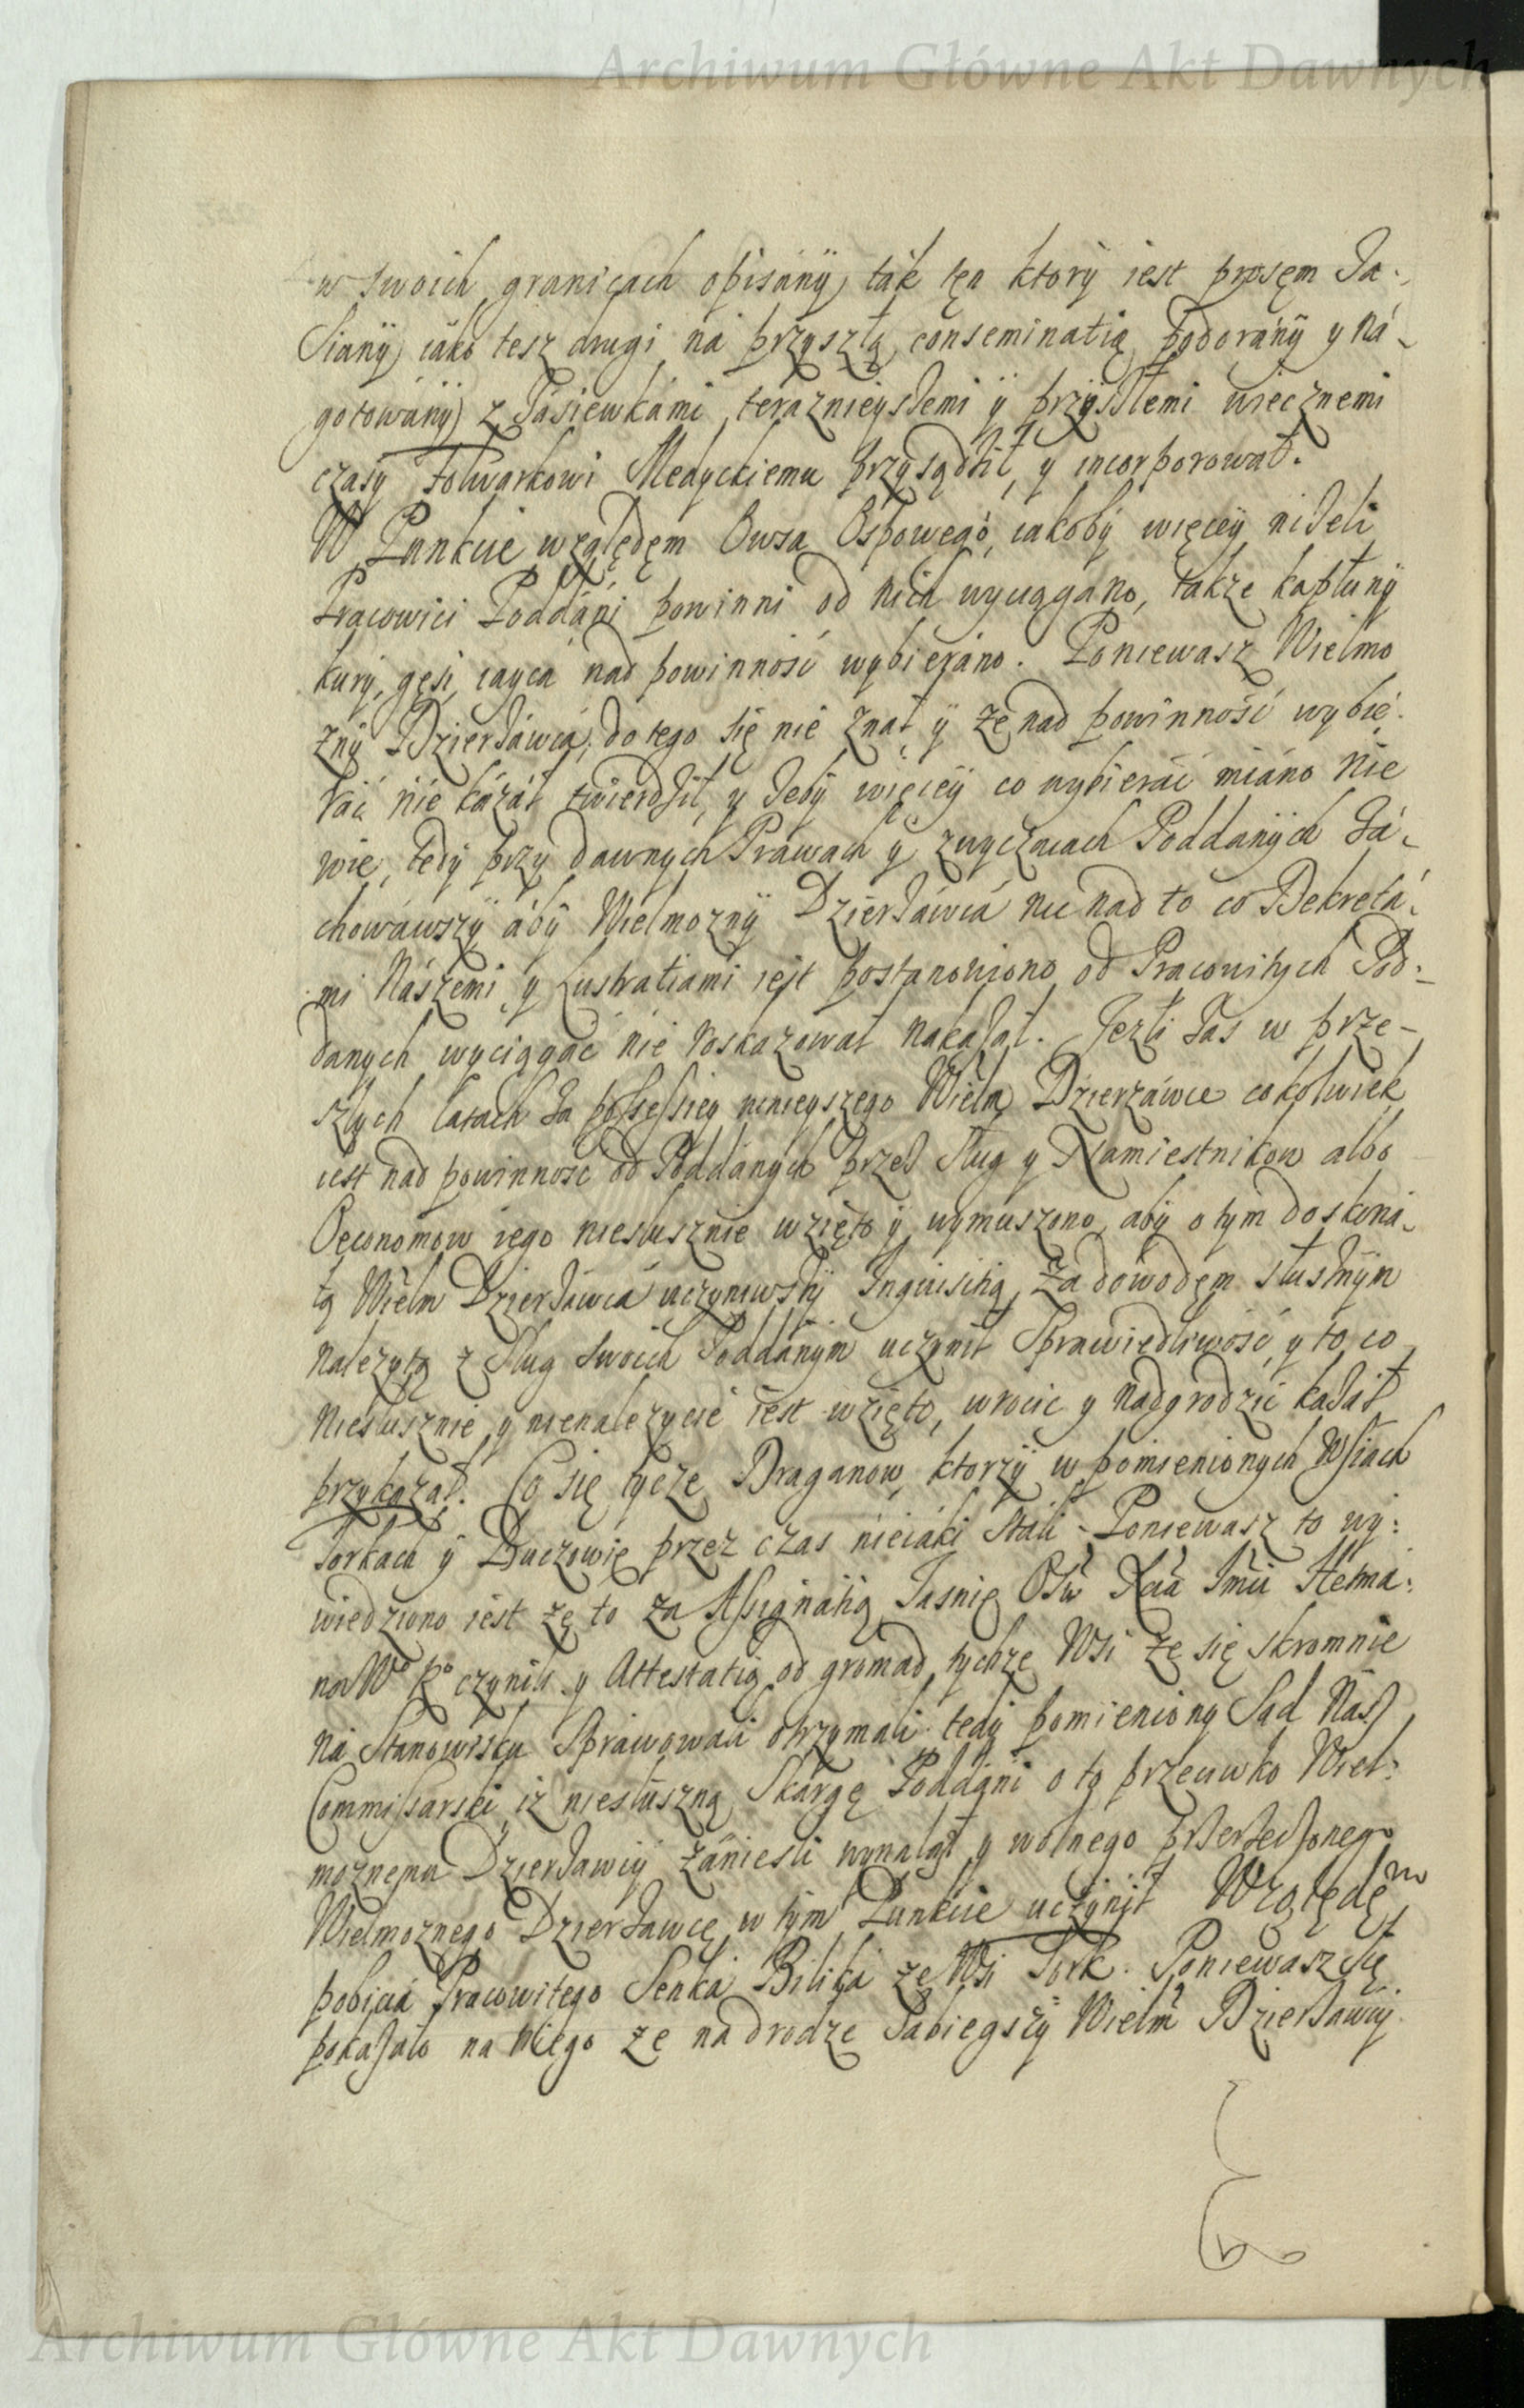 Archiwum Główne Akt Dawnych
w swoich granicach opisány, ták ten ktory iest prosęm Za-
siany, iáko tesz drugi ná przyszłą conseminatią podorány y ná-
gotowány z Zásiewkámi teraznieyszemi y przyszłemi wiecznemi
czasy folwarkowi Medyckiemu przysądził, y incorporował.
W Punkcie względęm Owsa Ospowego, iakoby więcey niżeli
Pracowici Poddáni powinni od nich wyciągáno, także kapłuny
kury, gęsi, iayca nad powinność wybieráno. Poniewasz Wielmo
zny Dzierżáwcá, do tego się nie znał y że nad powinność wybie-
ráć nie kázáł twierdził, y żeby więcey co wybieráć miáno nie
wie, tedy przy dawnych Práwach y zwyczáiach Poddanych Zá-
chowáwszy áby Wielmozny Dzierżáwcá nic nad to co Dekretá-
mi Nászemi y Lustratiami iest postanowiono od Pracowitych Pod-
danych wyciągáć nie roskazował nakazał. Jezli zas w prze-
szłych latach za possessiey ninieyszego Wielm Dzierzáwce cokolwiek
iest nad powinność od Poddánych przez Sług y Namiestnikow albo
Oeconomow iego niesłusznie wzięto y wymuszono, aby o tym doskoná-
łą Wielm Dzierżáwcá uczyniwszy Inquisitią, za dowodęm słusznym
należytą z Sług swoich Poddánym uczynił Sprawiedliwość, y to co
niesłusznie y nienależycie iest wzięto, wrocic y nadgrodzic kazáł
przykazał. Co się tycze Draganow, ktorzy w pomienionych Wsiach
Torkach y Duczowie przez czas nieiáki stali, Poniewasz to wy-
wiedziono iest że to za Assignátią Jasnie Osw Xcia Jmci Hetmá-
na Wo Ko czynili y Attestatią od gromad tychże Wsi że się skromnie
ná Stanowisku sprawowali otrzymali tedy pomieniony Sąd Nász
Commissarski, iż niesłuszną Skárgę Poddáni o to przeciwko Wiel-
możnemu Dzierżawcy zánieśli wynalazł y wolnego przerzeczonego
Wielmożnego Dzierżawcę w tym Punkcie uczynił Względęm
pobicia Pracowitego Senka Bilika ze Wsi Tork. Poniewasz się
pokazáło na niego że na drodze zabiegszy Wielm Dzierżawcy
Archiwum Główne Akt Dawnych